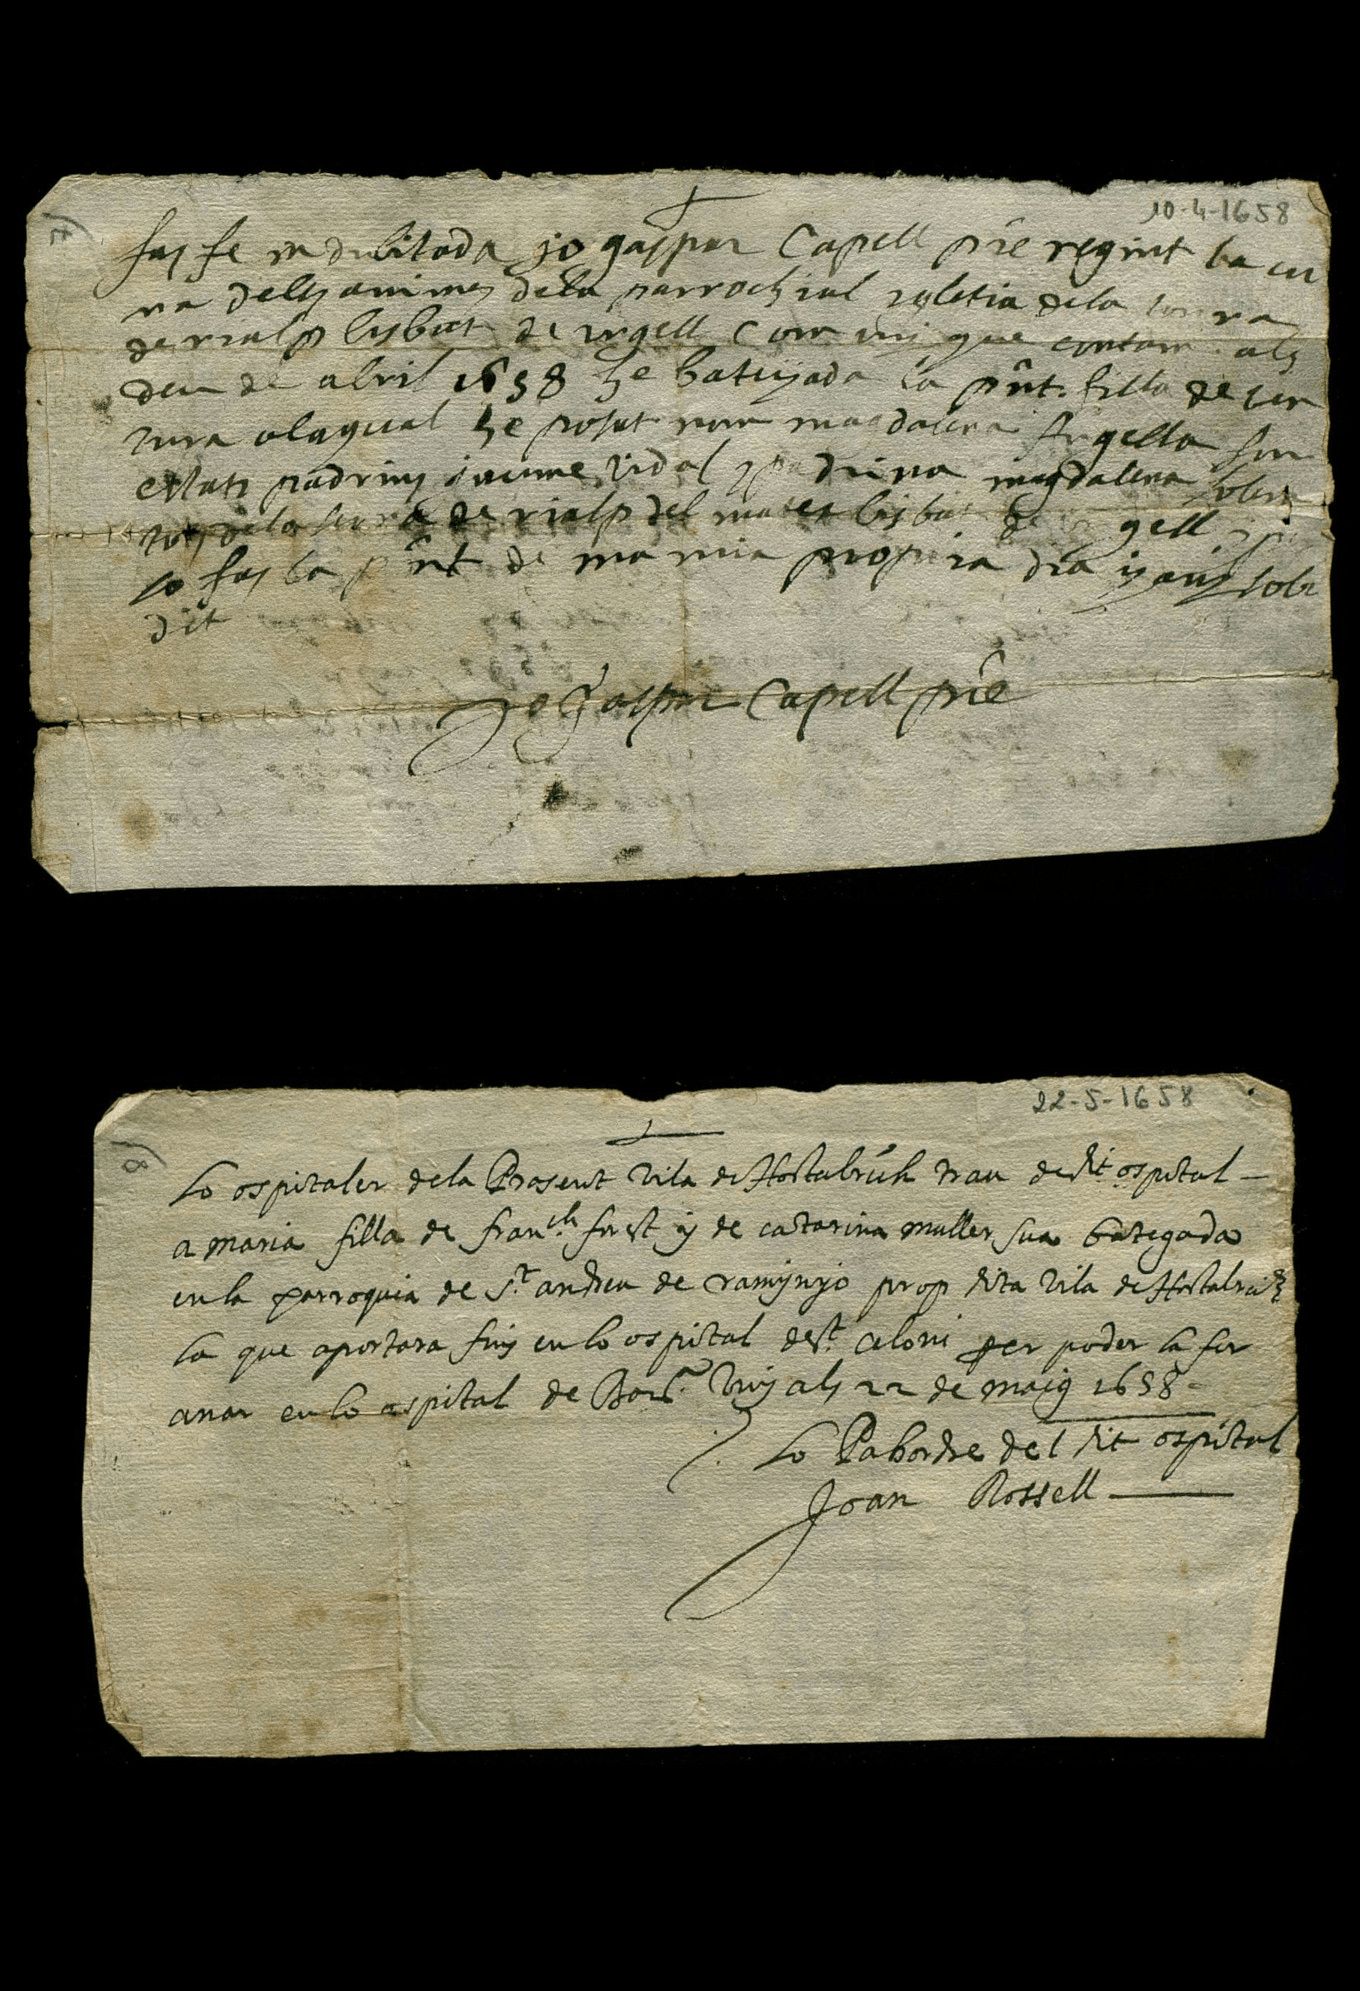 10-4-1658
7)
fas fe indubitada jo gaspar Capell pre regint la cu
ra dells animes dela parrochial iglesia dela
de rialp bisbat de urgell com vuy que contam als
deu de abril 1658 he batejada la pnt. filla de ven
tura alaqual he posat nom magdalena Angella son
estats padrins jaume Vidal y padrina magdalena
dela serra de rialp del mateix bisbat de gell
fas la pnt de ma mia propria dia y any sobr
dit
Jo Gaspar Capell pre
22-5-1658
8)
Lo ospitaler dela Present vila de Hostalrich trau de dit ospital
a maria filla de franch. forest y de catarina muller sua bategada
en la parroquia de St. andreu de ramynyo prop dita vila de Hostalrich
la que aportara fins en lo ospital de St. Celoni per poder la fer
anar en lo ospital de Barna. Vuy als 22 de maig 1658
Lo Pabordre del dit ospital
Joan Rossell